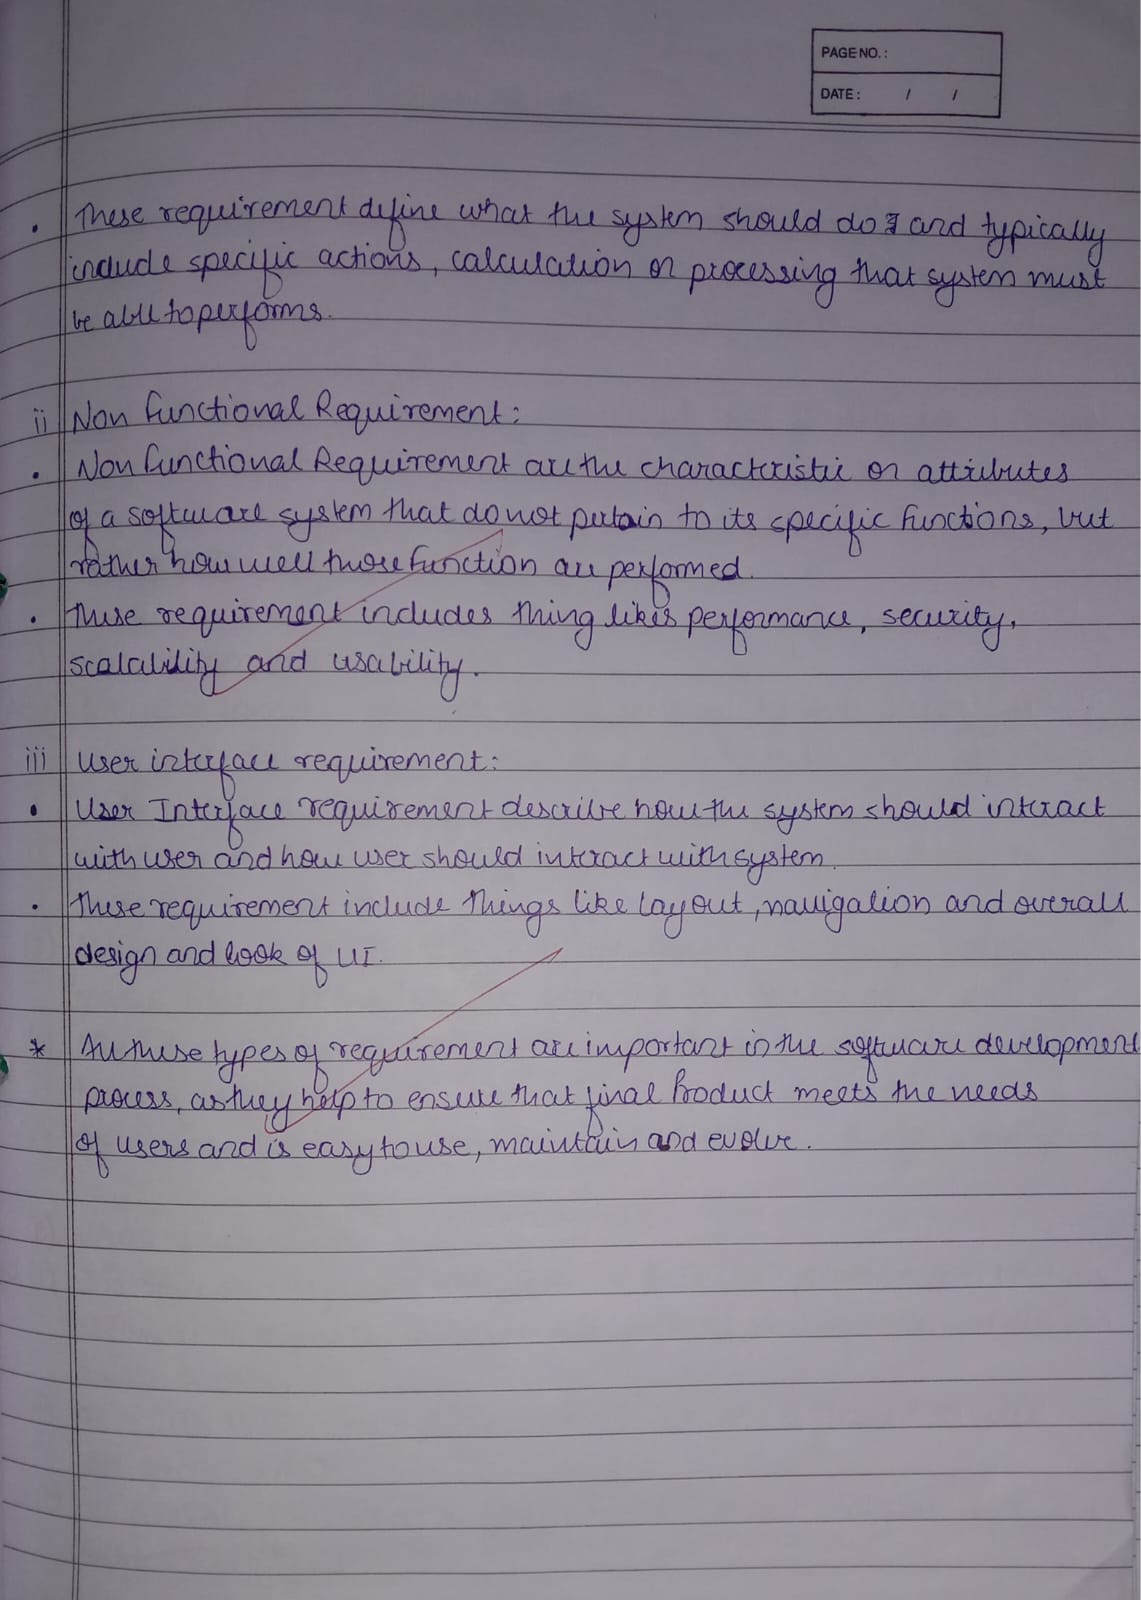 PAGE NO.:
DATE: / /
• These requirement define what the system should do and typically
include specific actions, calculation or processing that system must
be able to performs.
ii Non functional Requirement:
• Non functional Requirement are the characteristic or attributes
of a software system that do not pertain to its specific functions, but
rather how well those function are performed.
• These requirement includes thing likes performance, security,
scalability and usability.
iii User interface requirement:
• User Interface requirement describe how the system should interact
with user and how user should interact with system.
• These requirement include things like layout, navigation and overall
design and look of UI.
* All these types of requirement are important in the software development
process, as they help to ensure that final Product meets the needs
of users and is easy to use, maintain and evolve.